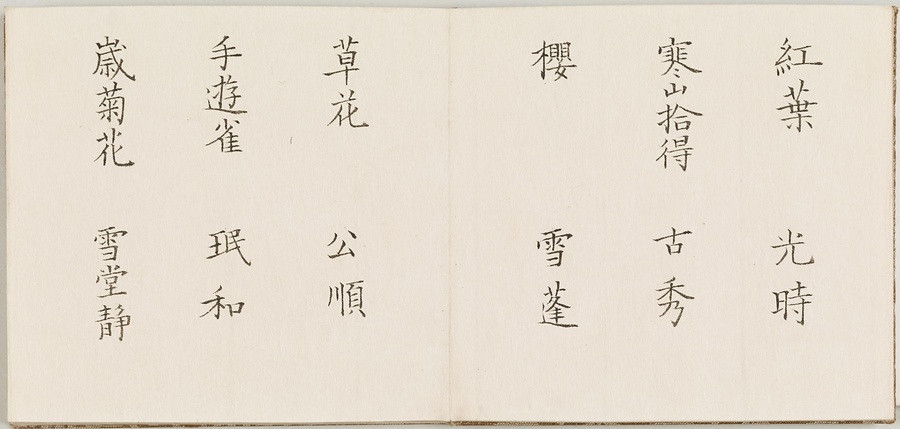 紅葉 光時
寒山拾得 古秀
櫻 雪蓬
草花 公順
手遊雀 珉和
歳菊花 雪堂静